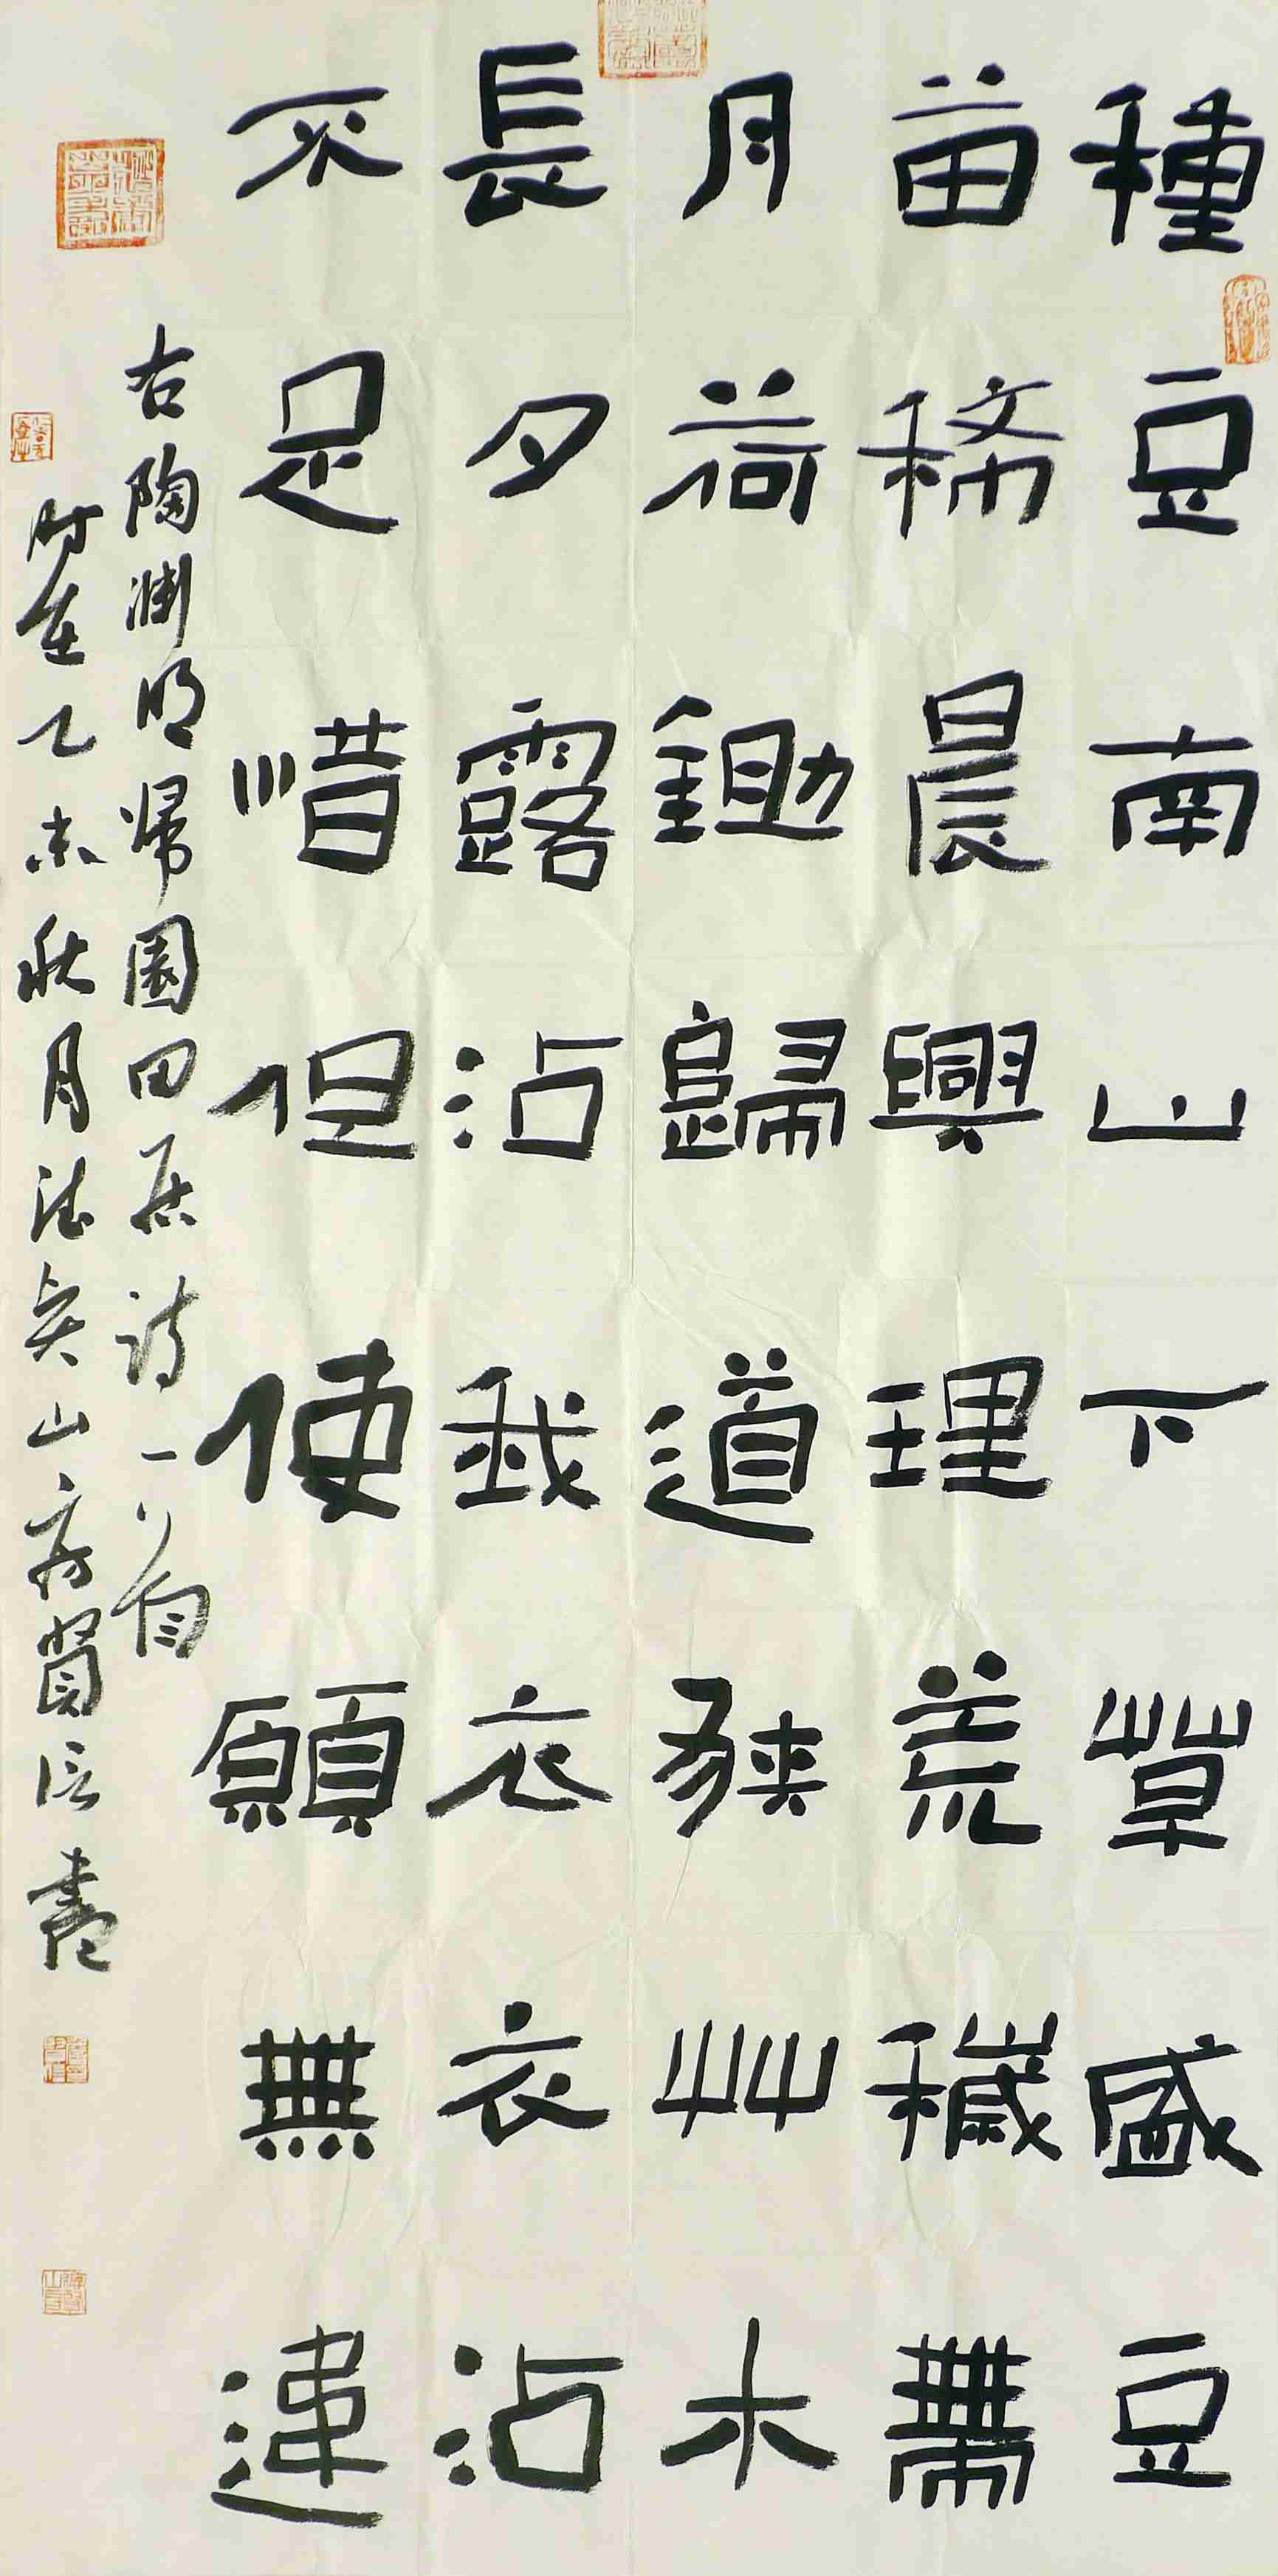 種豆南山下草盛豆
苗稀晨興理荒穢帶
月荷鋤歸道狹艸木
長夕露沾我衣衣沾
不足惜但使願無違
右陶渊明歸園田居詩一首
时在乙未秋月法矣山房賢臣書